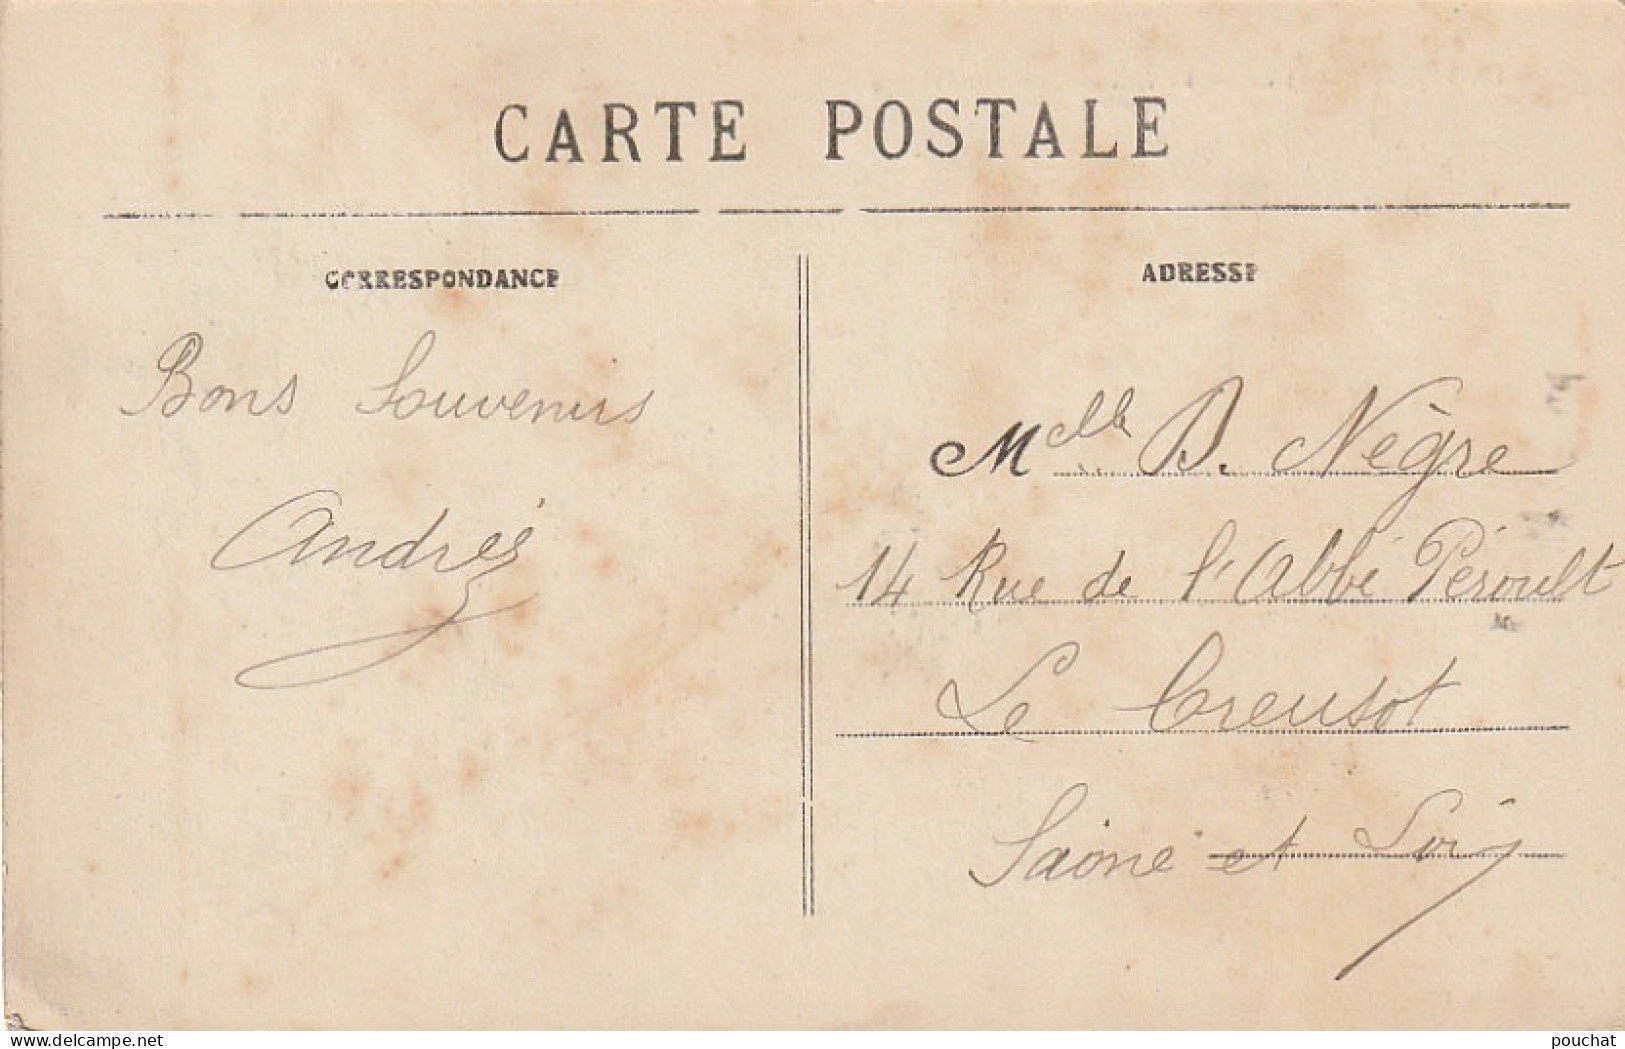 CARTE POSTALE
CORRESPONDANCE
Bons Souvenirs
André
ADRESSE
Melle B. Nègre
14 Rue de l'Abbé Péroult
Le Creusot
Saône et Loire
delcampe.net
pouchat